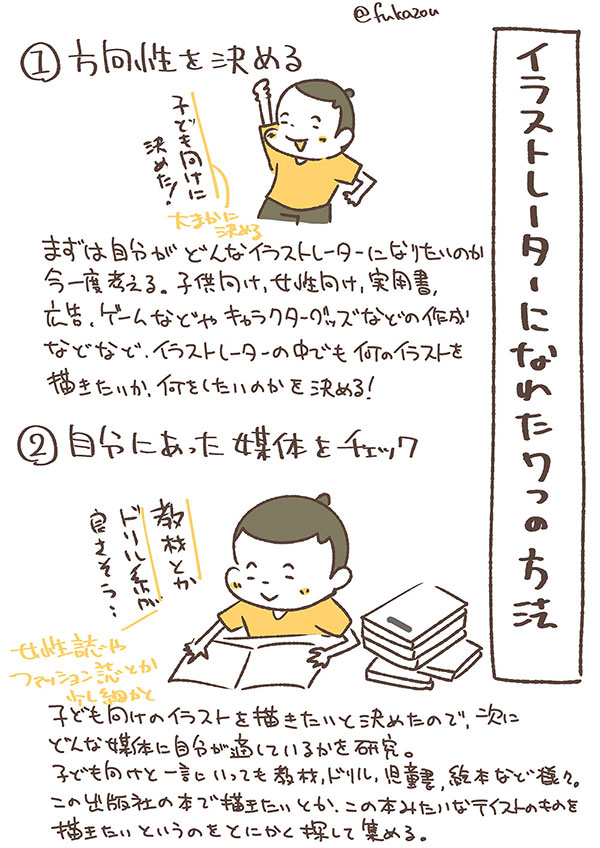 @fukazou
イラストレーターになれた7つの方法
① 方向性を決める
子ども向けに
決めた！
大まかに
決める
まずは自分がどんなイラストレーターになりたいのか
今一度考える。子供向け,女性向け,実用書,
広告,ゲームなどやキャラクターグッズなどの作成
などなど、イラストレーターの中でも何のイラストを
描きたいか,何をしたいのかを決める！
② 自分にあった媒体をチェック
教材とか
ドリル系が
良さそう…
女性誌や
ファッション誌とか
少し細かく
子ども向けのイラストを描きたいと決めたので,次に
どんな媒体に自分が適しているかを研究。
子ども向けと一言にいっても教材,ドリル,児童書,絵本など様々。
この出版社の本で描きたいとか,この本みたいなテイストのものを
描きたいというのをとにかく探して集める。